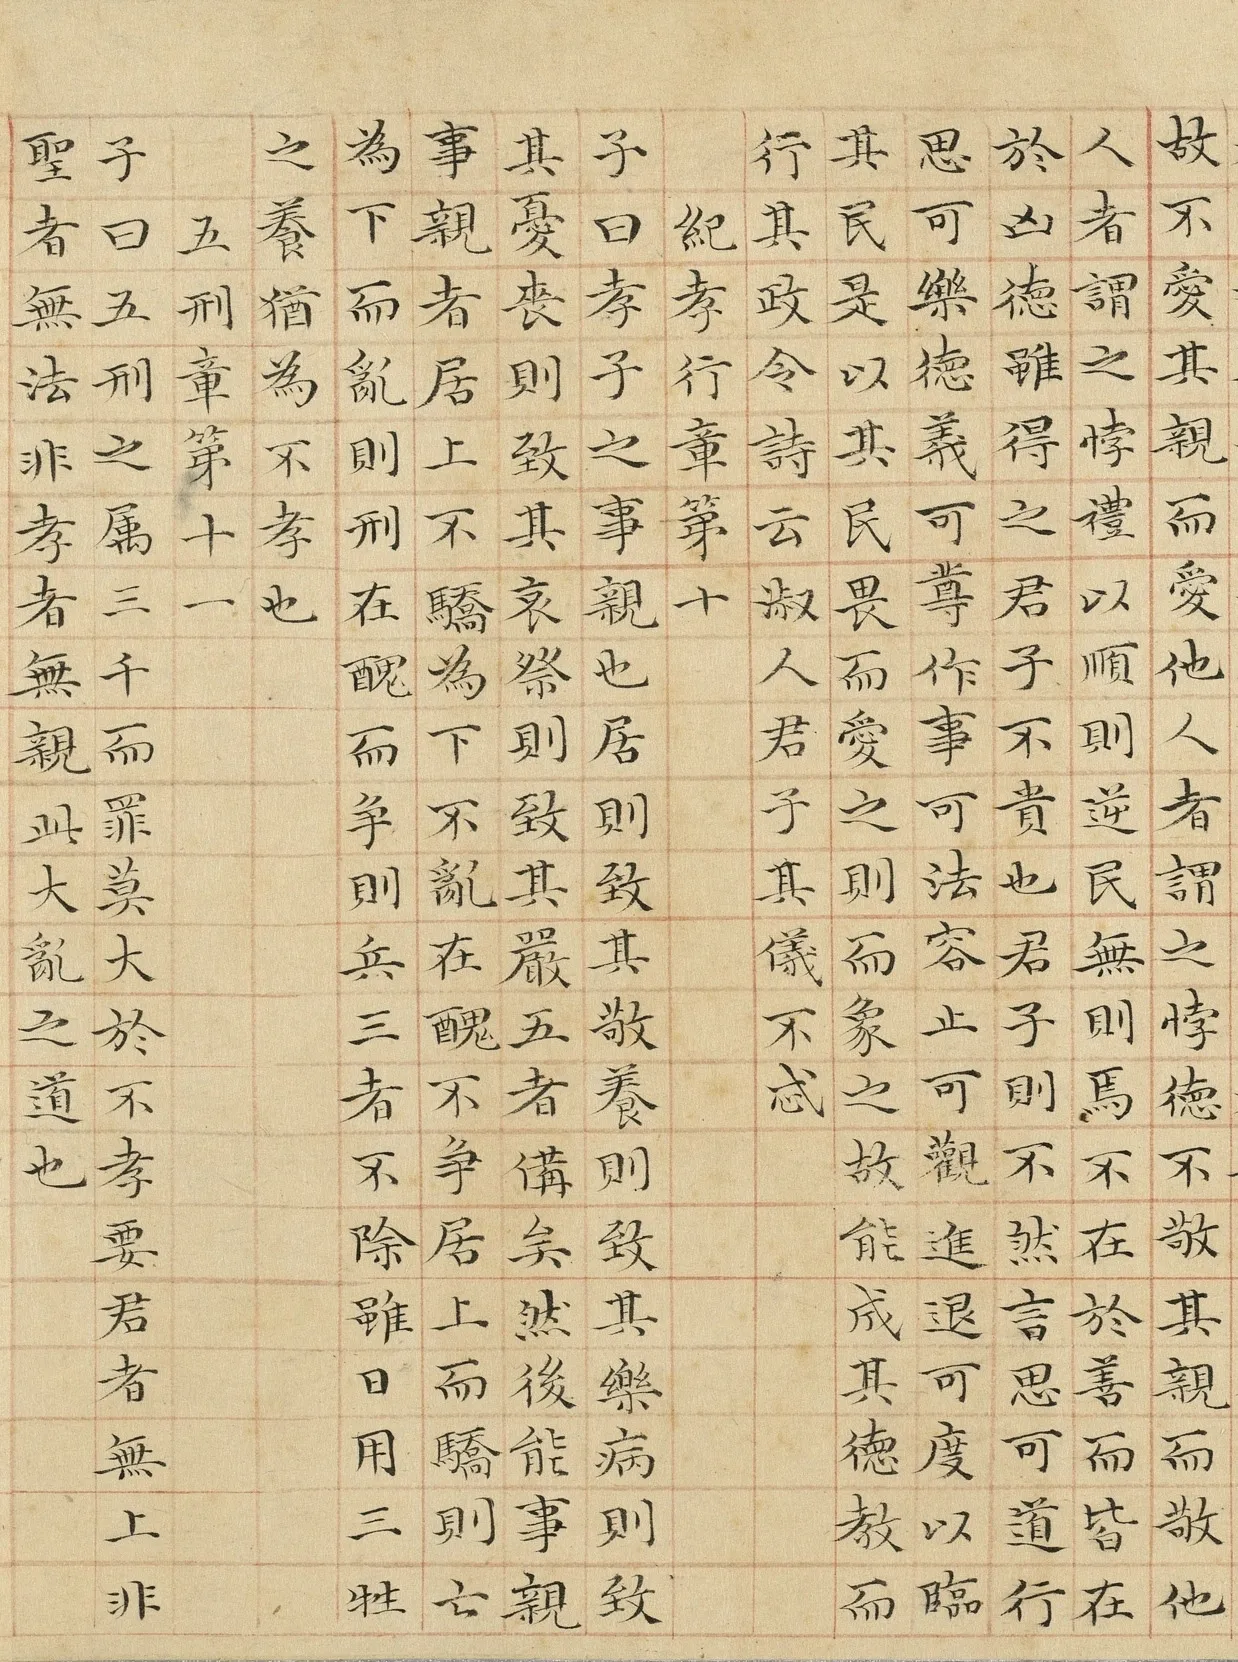 故不愛其親而愛他人者謂之悖德不敬其親而敬他
人者謂之悖禮以順則逆民無則焉不在於善而皆在
於凶德雖得之君子不貴也君子則不然言思可道行
思可樂德義可尊作事可法容止可觀進退可度以臨
其民是以其民畏而愛之則而象之故能成其德教而
行其政令詩云淑人君子其儀不忒
紀孝行章第十
子曰孝子之事親也居則致其敬養則致其樂病則致
其憂喪則致其哀祭則致其嚴五者備矣然後能事親
事親者居上不驕為下不亂在醜不争居上而驕則亡
為下而亂則刑在醜而争則兵三者不除雖日用三牲
之養猶為不孝也
五刑章第十一
子曰五刑之属三千而罪莫大於不孝要君者無上非
聖者無法非孝者無親此大亂之道也